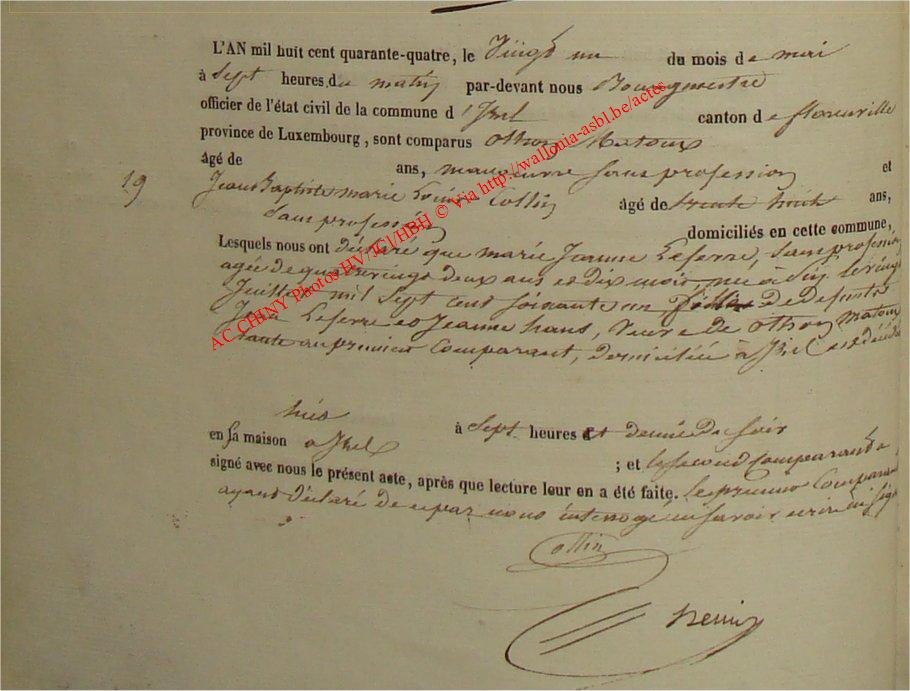 L'AN mil huit cent quarante-quatre, le Vingt un du mois de mai
à Sept heures du matin par-devant nous Bourgmestre
officier de l'état civil de la commune d'Izel canton de florenville
province de Luxembourg, sont comparus othon Matoux
âgé de ans, manœuvre sans profession et
19
Jean Baptiste marie Collin âgé de trente huit ans,
Sans profession domiciliés en cette commune,
Lesquels nous ont déclaré que marie Jeanne Leferre, Sans profession
agée de quatrevingt deux ans et dix mois, née à le vingt
Juillet mil Sept cent soixante un fille de defunts
Leferre et Jeanne hans, Veuve de othon Matoux
tante au premier Comparant, domiciliée à Izel est décédée
hier à Sept heures et demie du soir
en sa maison a Izel ; et le second comparant a
signé avec nous le présent acte, après que lecture leur en a été faite. le premier Comparant
ayant déclaré de ce par nous interrogé ne savoir écrire ni signer
Collin
AC CHINY Photos HV/JCl/HBH © Via http://wallonia-asbl.be/actes